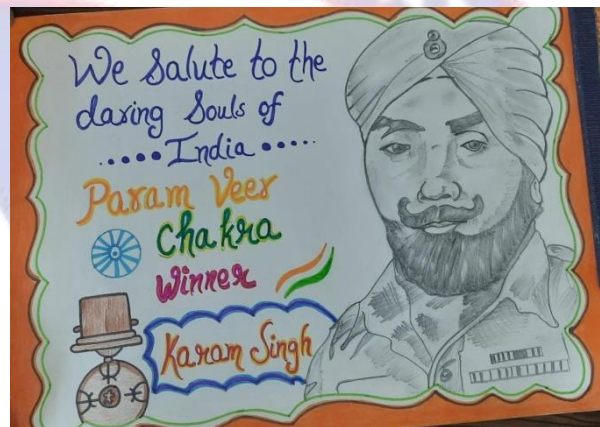 We Salute to the
daring Souls of
.....India.....
Param Veer
Chakra
Winner
Karam Singh